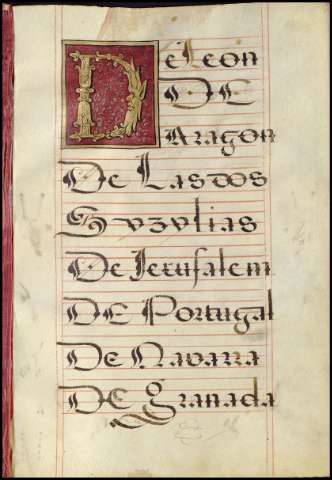 De Leon
DE
Aragon
De Las dos
Syzylias
De Jerusalem
DE Portugal
De Navarra
DE granada